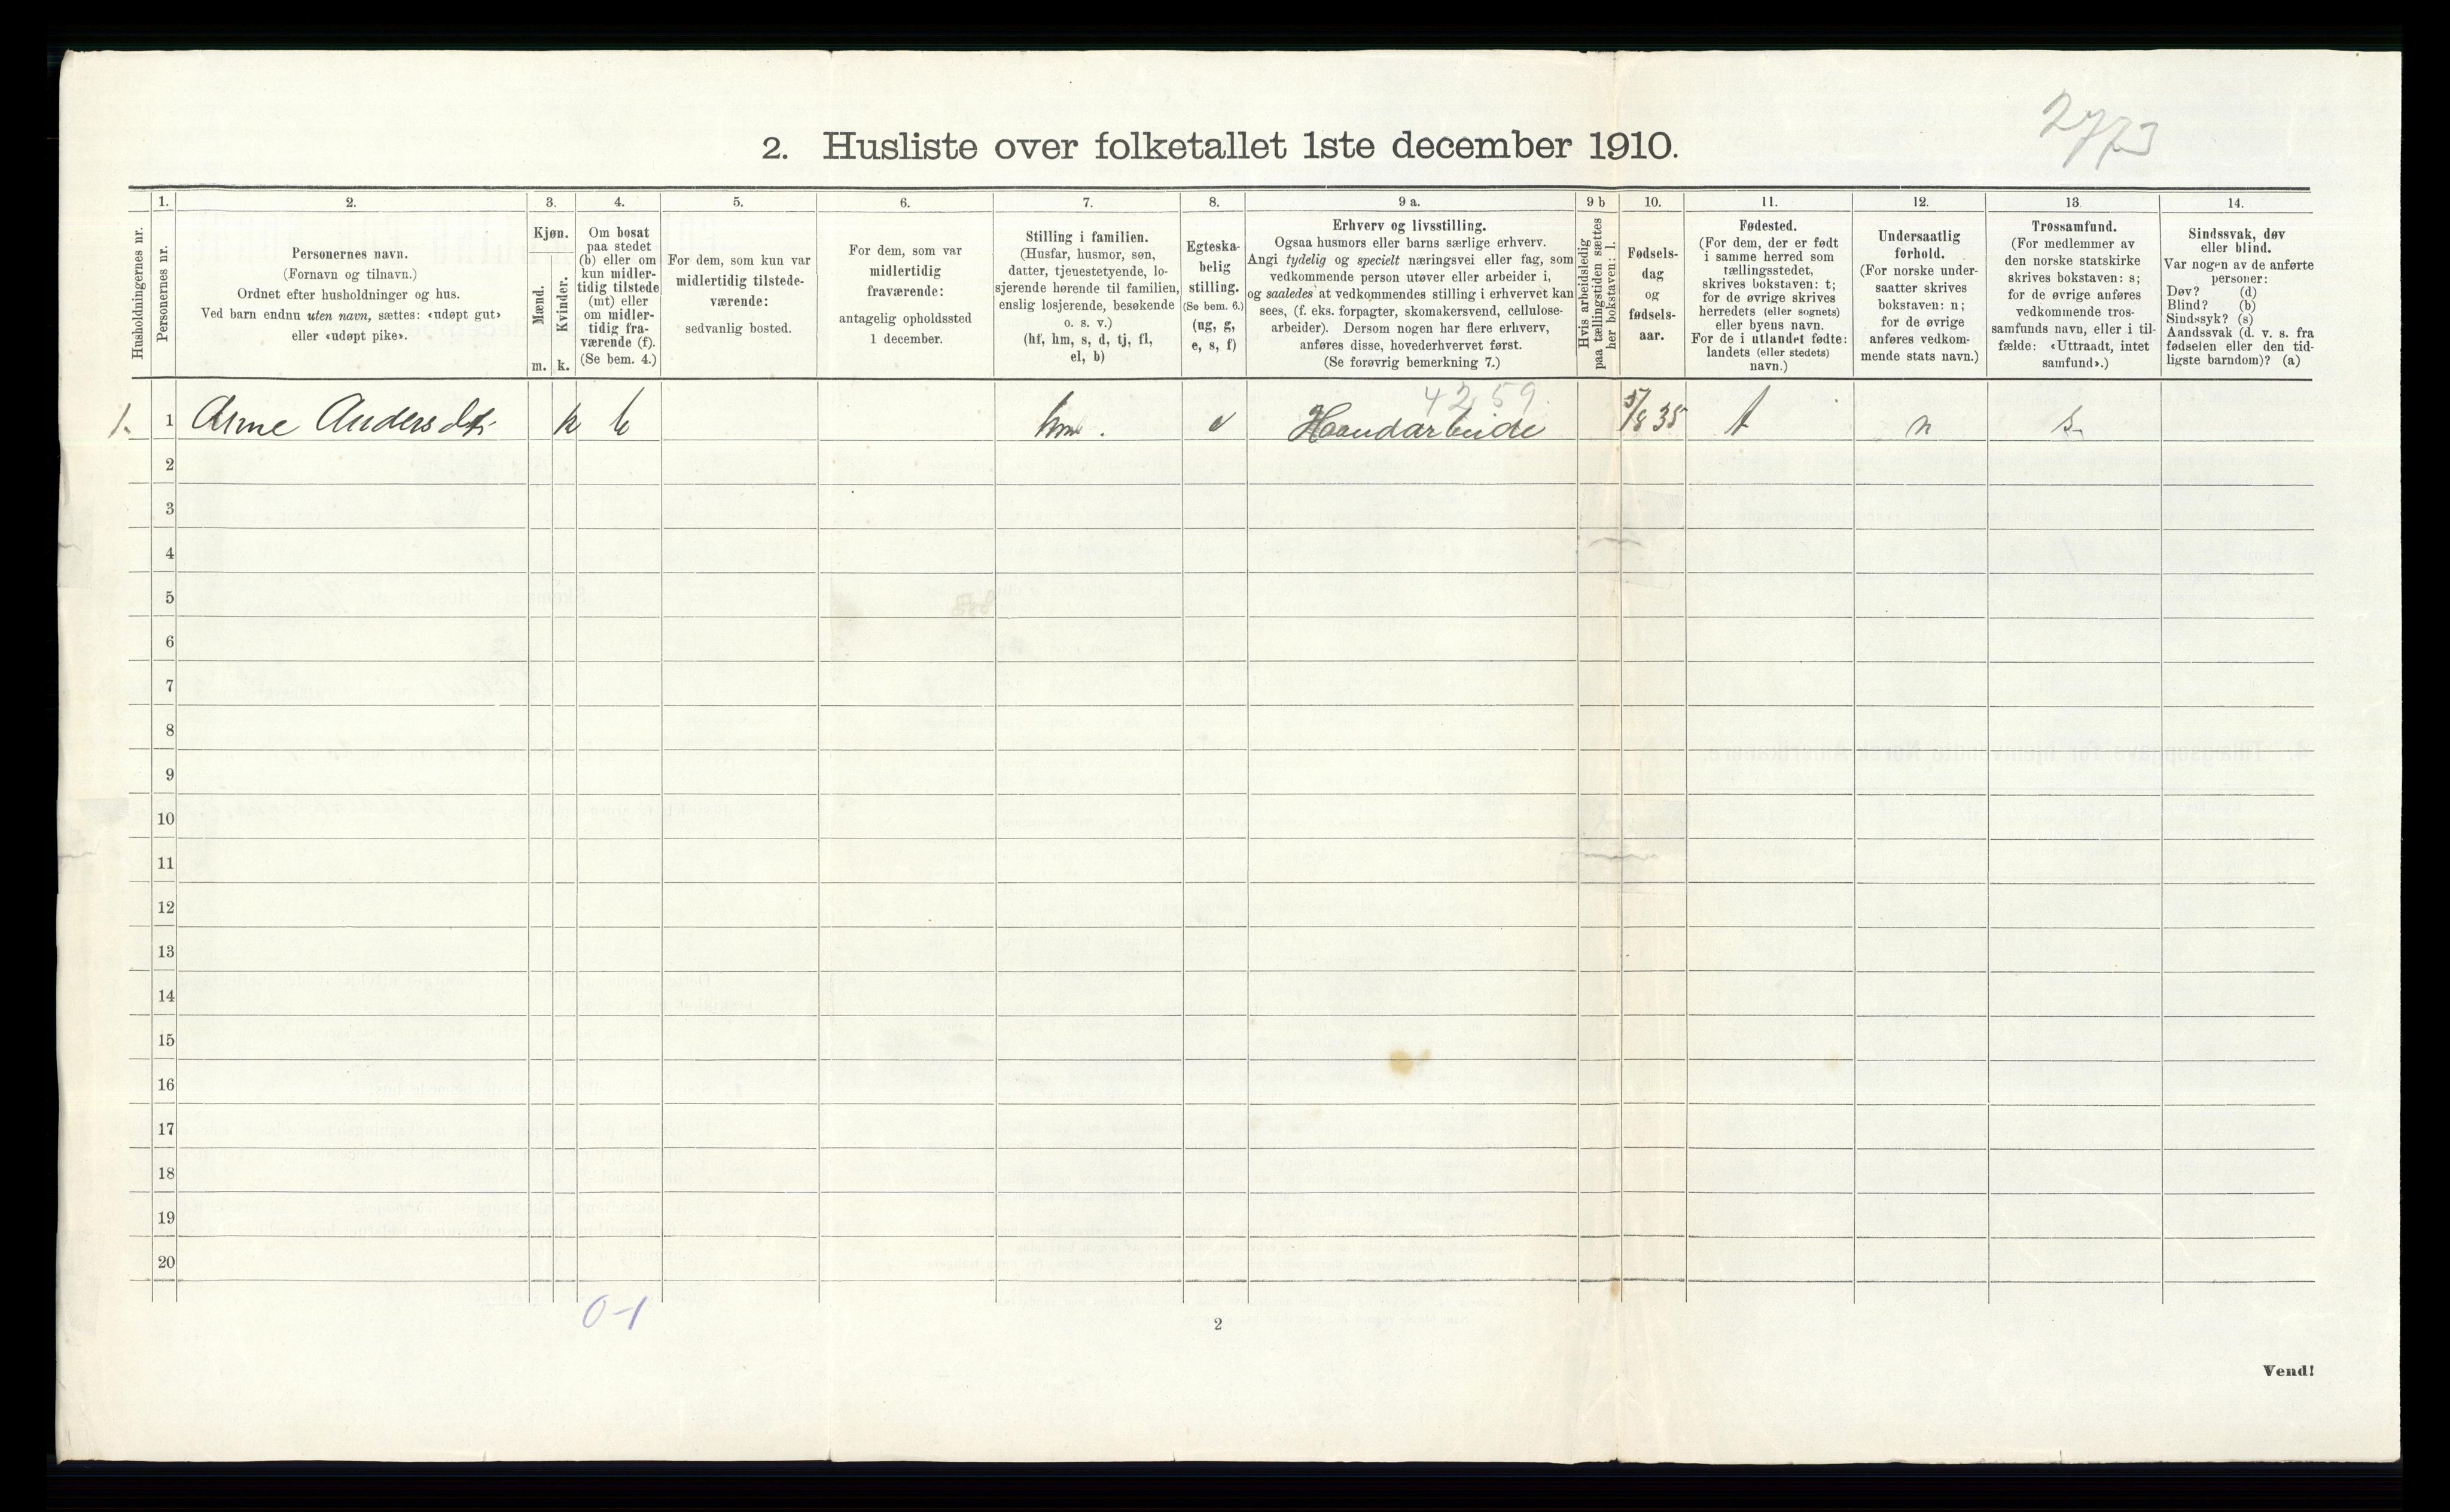 2773
2. Husliste over folketallet 1ste december 1910.
Husholdningernes nr.
1.
Personernes nr.
2.
Personernes navn.
(Fornavn og tilnavn.)
Ordnet efter husholdninger og hus.
Ved barn endnu uten navn, sættes: «udøpt gut»
eller «udøpt pike».
3.
Kjøn.
Mænd.
m.
Kvinder.
k.
4.
Om bosat
paa stedet
(b) eller om
kun midler-
tidig tilstede
(mt) eller
om midler-
tidig fra-
værende (f).
(Se bem. 4.)
5.
For dem, som kun var
midlertidig tilstede-
værende:
sedvanlig bosted.
6.
For dem, som var
midlertidig
fraværende:
antagelig opholdssted
1 december.
7.
Stilling i familien.
(Husfar, husmor, søn,
datter, tjenestetyende, lo-
sjerende hørende til familien,
enslig losjerende, besøkende
o. s. v.)
(hf, hm, s, d, tj, fl,
el, b)
8.
Egteska-
belig
stilling.
(Se bem. 6.)
(ug, g,
e, s, f)
9 a.
Erhverv og livsstilling.
Ogsaa husmors eller barns særlige erhverv.
Angi tydelig og specielt næringsvei eller fag, som
vedkommende person utøver eller arbeider i,
og saaledes at vedkommendes stilling i erhvervet kan
sees, (f. eks. forpagter, skomakersvend, cellulose-
arbeider). Dersom nogen har flere erhverv,
anføres disse, hovederhvervet først.
(Se forøvrig bemerkning 7.)
9 b
Hvis arbeidsledig
paa tællingstiden sættes
her bokstaven: l.
10.
Fødsels-
dag
og
fødsels-
aar.
11.
Fødested.
(For dem, der er født
i samme herred som
tællingsstedet,
skrives bokstaven: t;
for de øvrige skrives
herredets (eller sognets)
eller byens navn.
For de i utlandet fødte:
landets (eller stedets)
navn.)
12.
Undersaatlig
forhold.
(For norske under-
saatter skrives
bokstaven: n;
for de øvrige
anføres vedkom-
mende stats navn.)
13.
Trossamfund.
(For medlemmer av
den norske statskirke
skrives bokstaven: s;
for de øvrige anføres
vedkommende tros-
samfunds navn, eller i til-
fælde: «Uttraadt, intet
samfund».)
14.
Sindssvak, døv
eller blind.
Var nogen av de anførte
personer:
Døv? (d)
Blind? (b)
Sindssyk? (s)
Aandssvak (d. v. s. fra
fødselen eller den tid-
ligste barndom)? (a)
4259.
1. 1 k b hm. e Haandarbeide 5/8 35 t n s.
2
3
4
5
6
7
8
9
10
11
12
13
14
15
16
17
18
19
20
0-1
2
Vend!